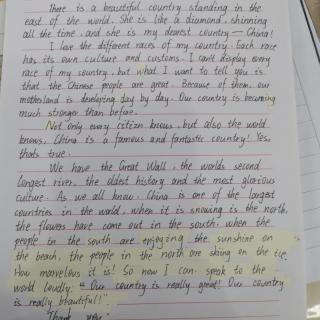 There is a beautiful country standing in the
east of the world. She is like a diamond, shinning
all the time, and she is my dearest country — China!
I love the different races of my country. Each race
has its own culture and customs. I can't display every
race of my country, but what I want to tell you is
that the Chinese people are great. Because of them, our
motherland is developing day by day. Our country is becoming
much stronger than before.
Not only every citizn knows, but also the world
knows, China is a famous and fantastic country! Yes,
thats true.
We have the Great Wall, the worlds second
longest river, the oldest history and the most glorious
culture. As we all know, China is one of the largest
countries in the world, when it is snowing is the north,
the flowers have come out in the south, when the
people in the south are enjoying the sunshine on
the beach, the people in the north are skiing on the ice.
How marvelous it is! So now I can speak to the
world loudly: "Our country is really great! Our country
is really beautiful!".
Thank you!